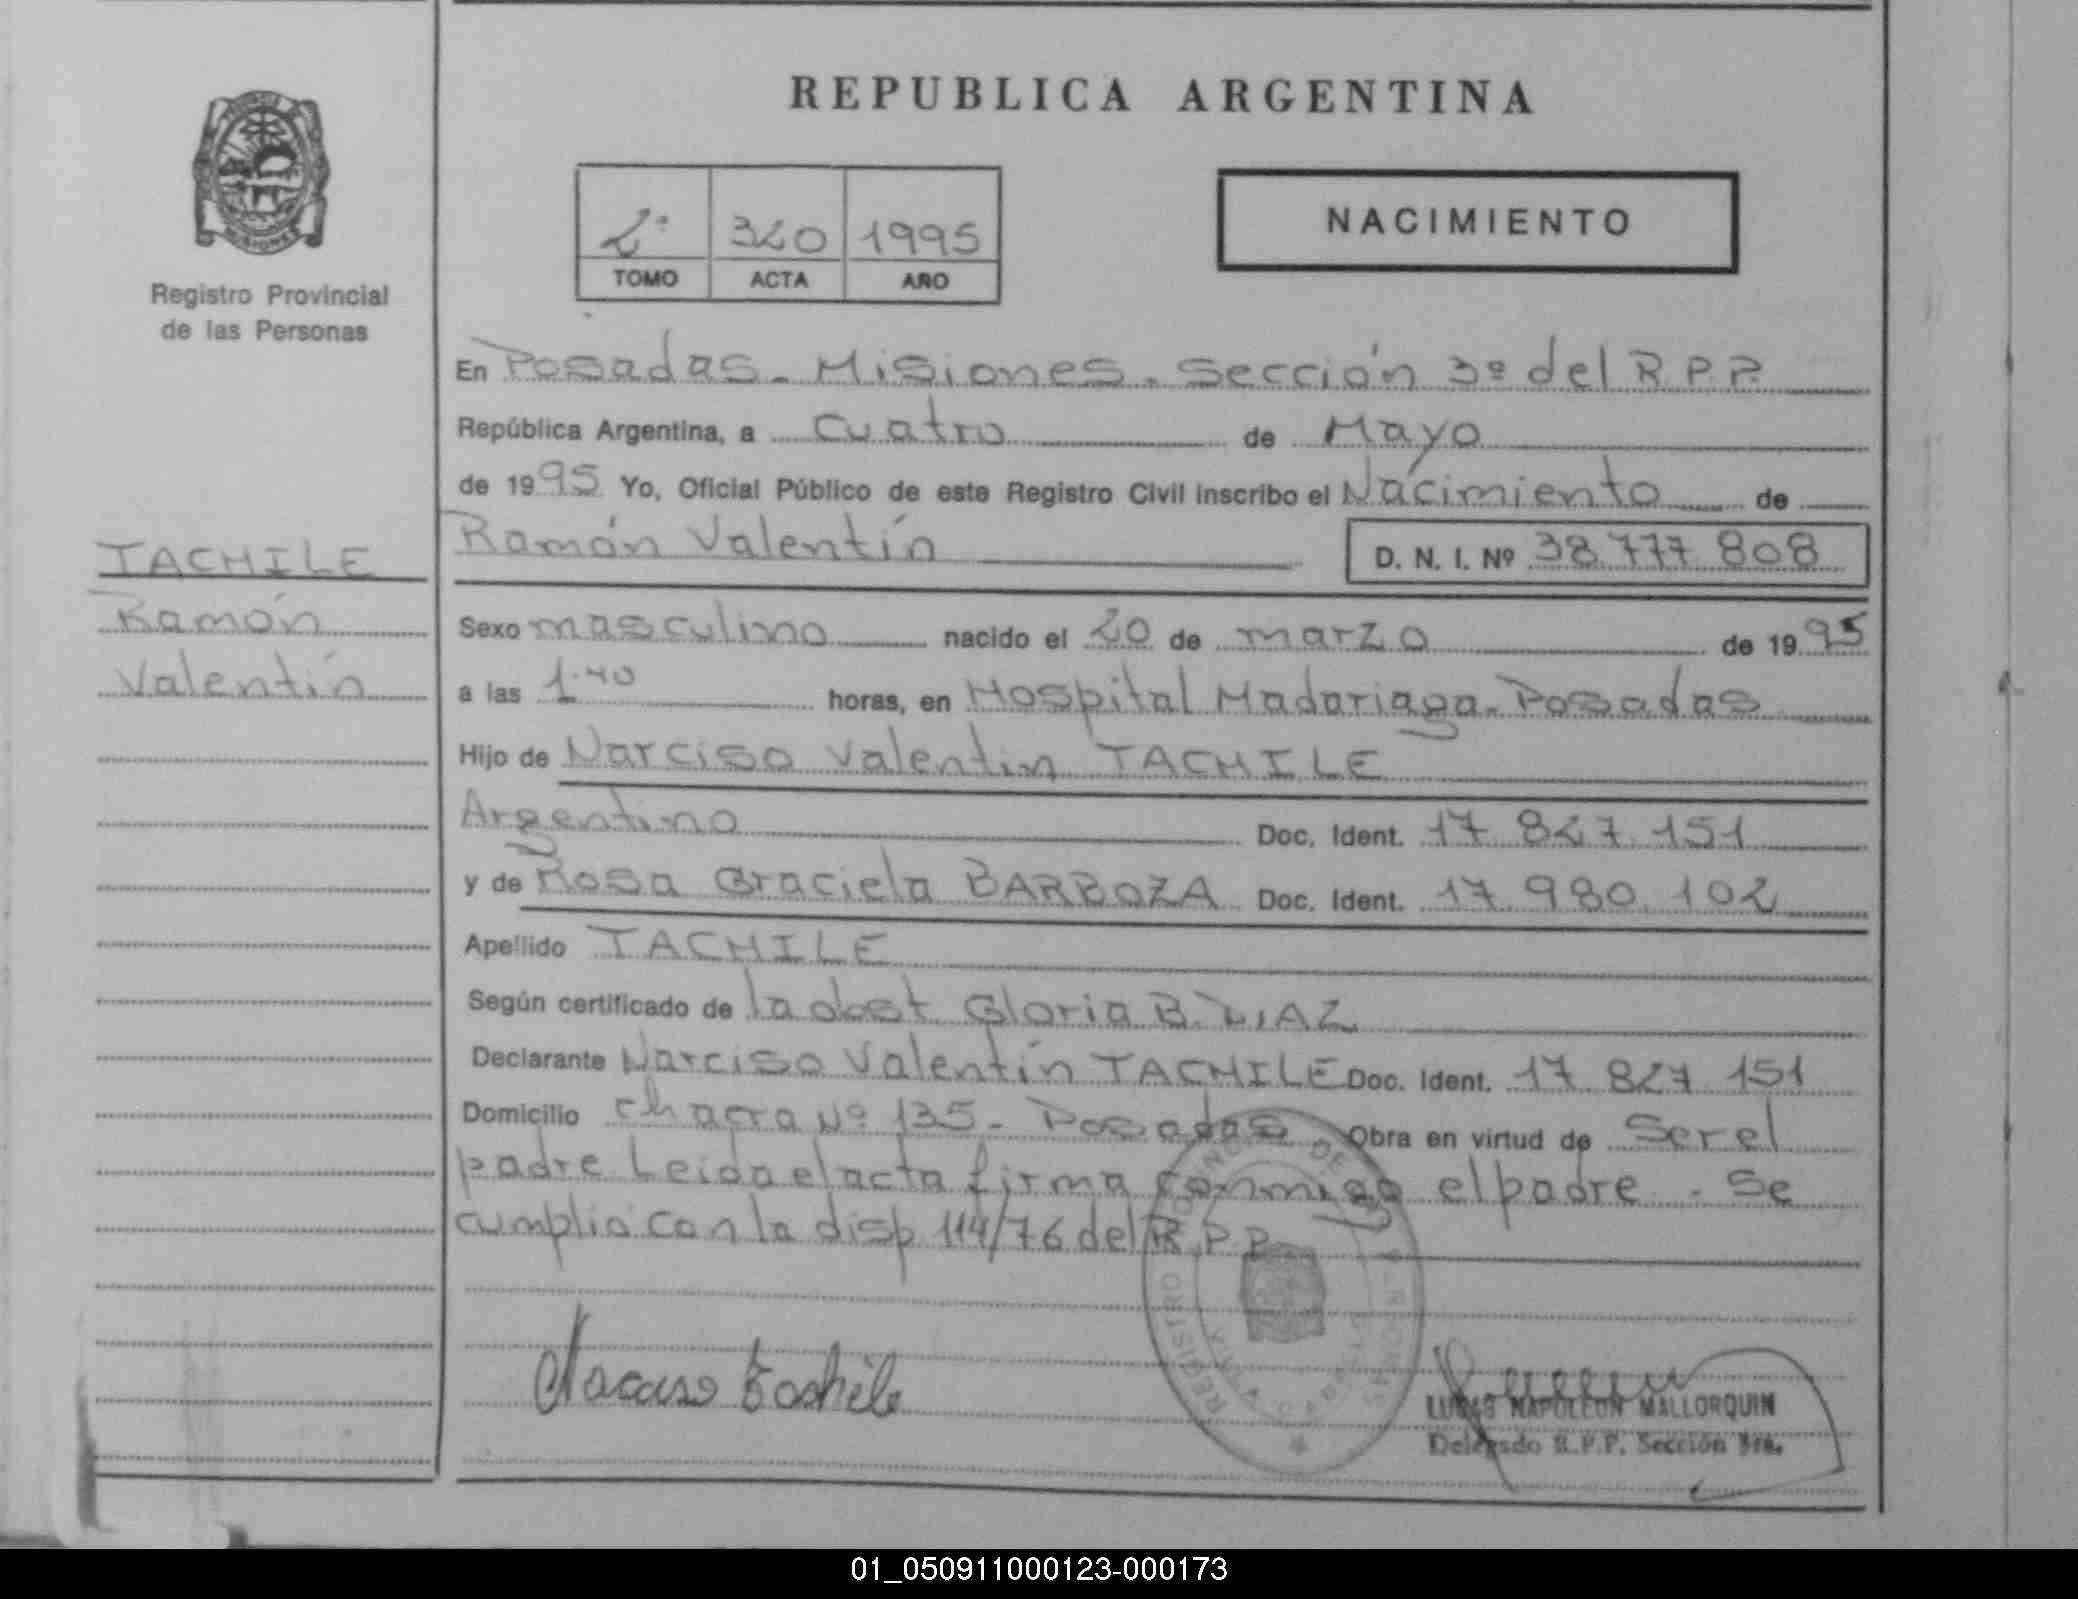 REPUBLICA ARGENTINA
MISIONES
Registro Provincial
de las Personas
2º 320 1995
TOMO ACTA AÑO
NACIMIENTO
En Posadas - Misiones - Sección 3º del R.P.P.
República Argentina, a Cuatro de Mayo
de 1995 Yo, Oficial Público de este Registro Civil inscribo el Nacimiento de
Ramón Valentín
D. N. I. Nº 38.777.808
TACHILE
Ramón
Valentín
Sexo masculino nacido el 20 de marzo de 1995
a las 1.40 horas, en Hospital Madariaga - Posadas
Hijo de Narciso Valentin TACHILE
Argentino Doc. Ident. 17.827.151
y de Rosa Graciela BARBOZA Doc. Ident. 17.980.102
Apellido TACHILE
Según certificado de la obst Gloria B. DIAZ
Declarante Narciso Valentín TACHILE Doc. Ident. 17.827.151
Domicilio chacra Nº 135 - Posadas Obra en virtud de Ser el
padre Leida el acta firma conmigo el padre - Se
cumplió con la disp 114/76 del R.P.P.
Narciso Tachile
LUCAS NAPOLEON MALLORQUIN
Delegado R.P.P. Sección 3ra.
01_050911000123-000173